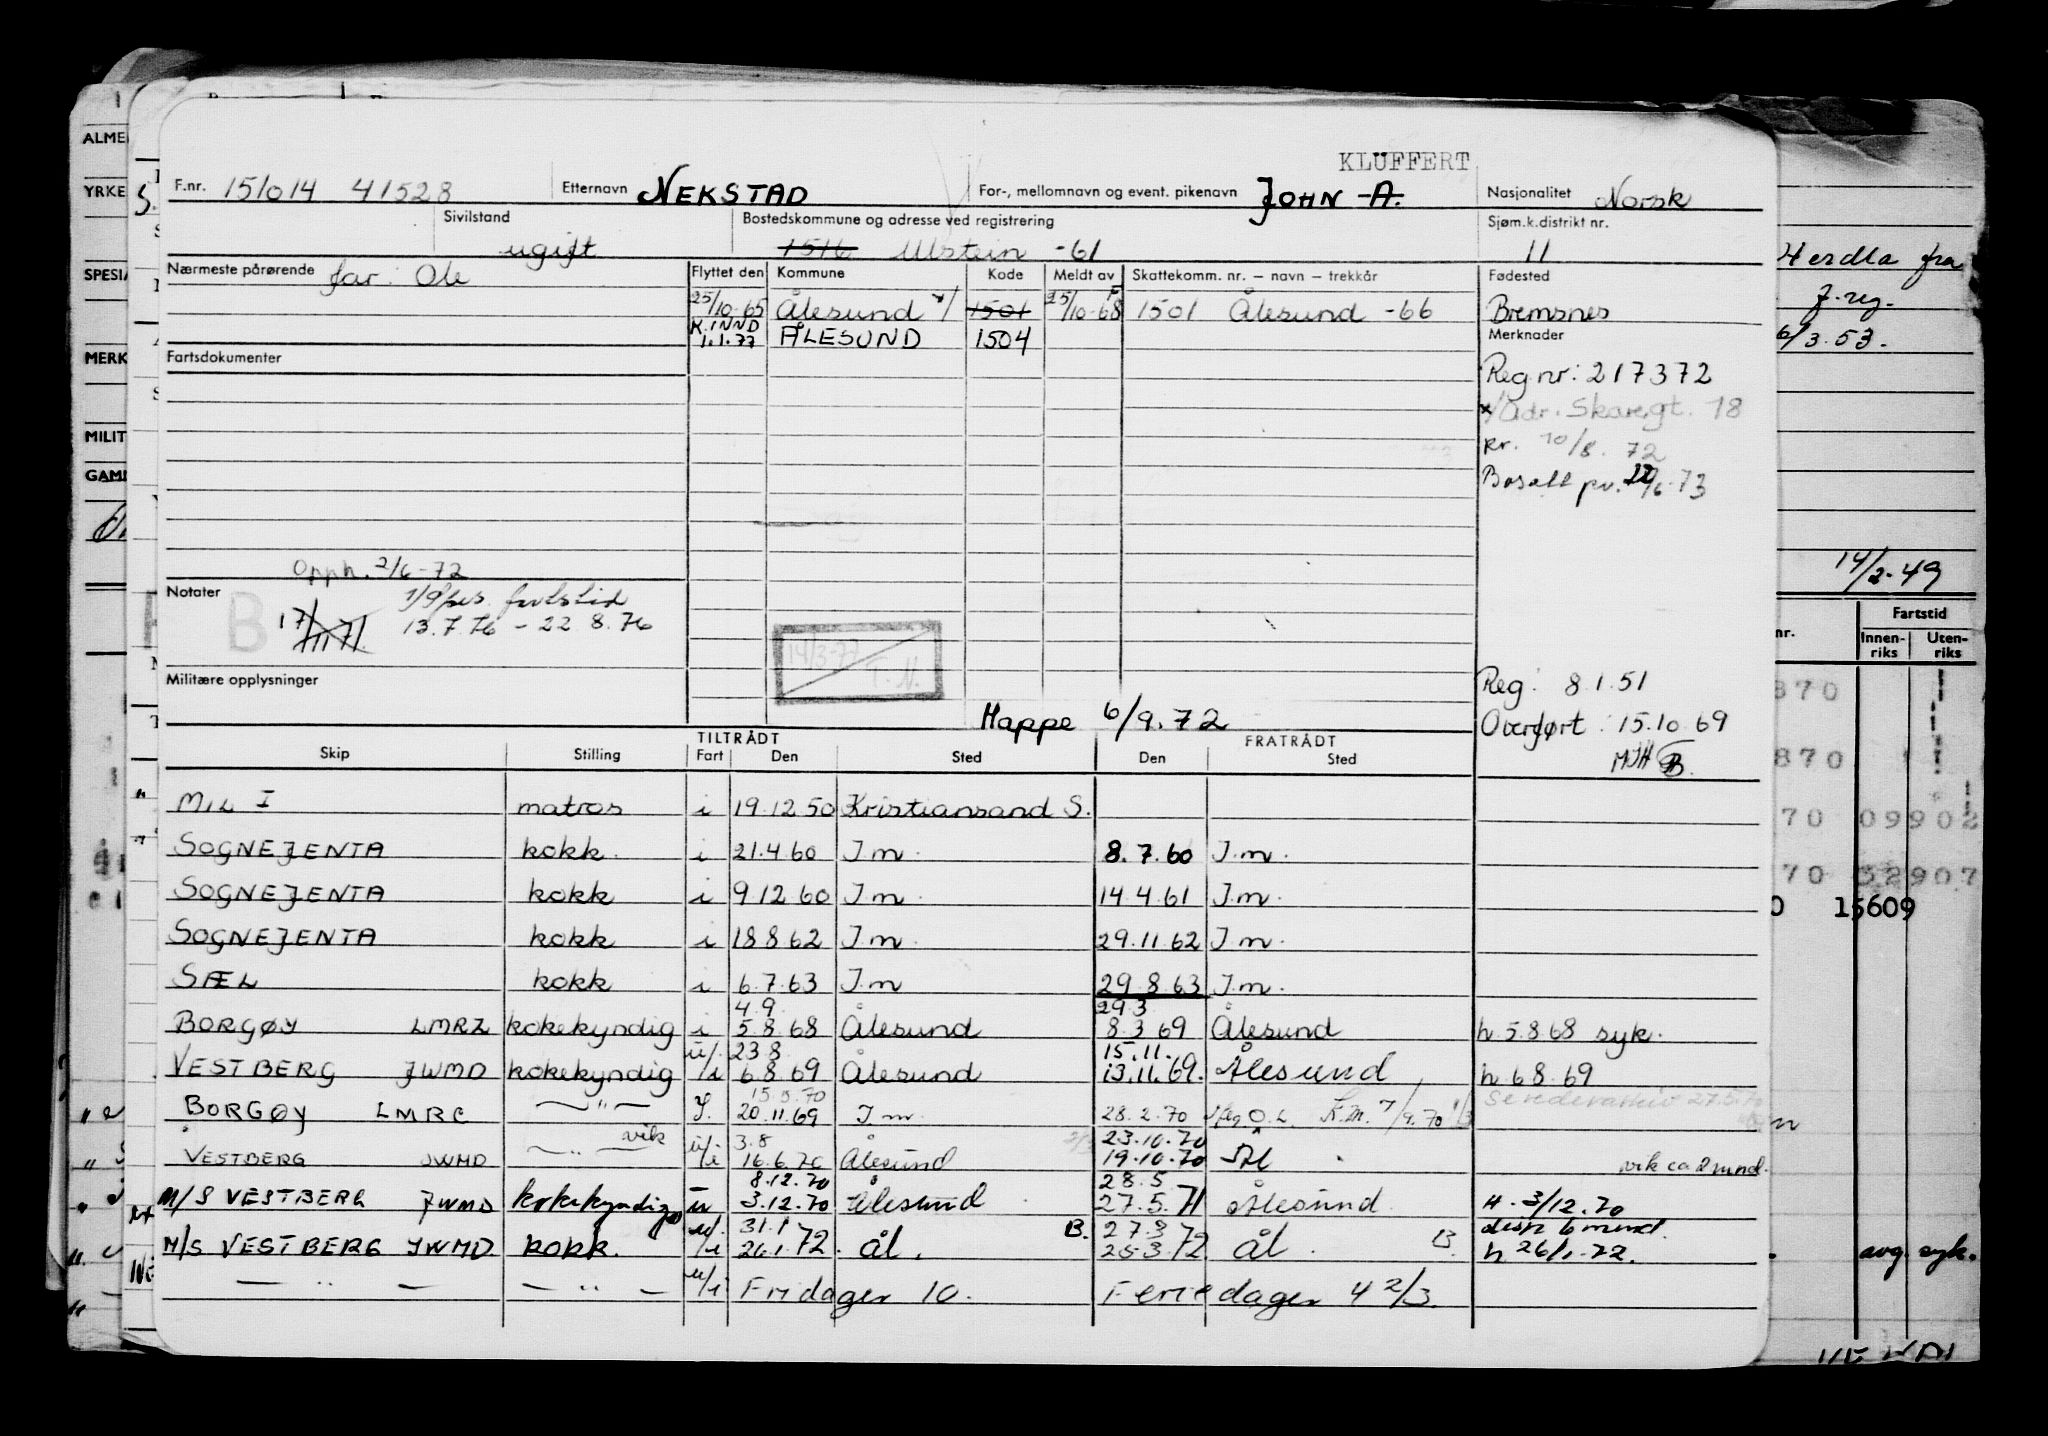 KLUFFERT
F.nr. 151014 41528 Etternavn NEKSTAD For-, mellomnavn og event. pikenavn JOHN A. Nasjonalitet Norsk
Sivilstand ugift Bostedskommune og adresse ved registrering 1516 Ulstein -61 Sjøm.k.distrikt nr. 11
Nærmeste pårørende far: Ole Flyttet den Kommune Kode Meldt av Skattekomm. nr. – navn – trekkår Fødested
25/10-65 Ålesund x/ 1501 25/10-68 1501 Ålesund -66 Bremsnes
K.INND 1.1.77 ÅLESUND 1504 Merknader
Fartsdokumenter
Reg nr: 217372
x/Adr. Skaregt. 18
kr. 10/8. 72
Bosatt pv. 22/6-73
Opph. 2/6-72
Notater 1/9 fartstid
17/11 71 13.7.76 – 22.8.76
B
14/3-77 T.N.
Militære opplysninger
Reg: 8.1.51
Happe 6/9.72
Overført: 15.10.69
MJH B.
TILTRÅDT FRATRÅDT
Skip Stilling Fart Den Sted Den Sted
MIL I matros i 19.12.50 Kristiansand S.
SOGNEJENTA kokk i 21.4.60 I.m. 8.7.60 I.m.
SOGNEJENTA kokk i 9.12.60 I.m. 14.4.61 I.m.
SOGNEJENTA kokk i 18.8.62 I.m. 29.11.62 I.m.
SÆL kokk i 6.7.63 I.m 29.8.63 I.m.
4.9 29.3
BORGØY LMRZ kokekyndig i 5.8.68 Ålesund 8.3.69 Ålesund h 5.8.68 syk.
u/ 23.8 15.11.
VESTBERG JWMD kokekyndig /i 6.8.69 Ålesund 13.11.69. Ålesund h 6.8.69
15.5.70
BORGØY LMRC — " — I. 20.11.69 I.m. 28.2.70 K.m. 7/9.70
vik u/ 3.8 23.10.70
VESTBERG JWMD — " — /i 16.6.70 Ålesund 19.10.70 Ål vik ca 2 mnd.
8.12.70 28.5
M/S VESTBERG JWMD kokekyndig u 3.12.70 Ålesund 27.5.71 Ålesund. H. 3/12.70
disp 6 mund.
u/ 31.1 B. 27.3
M/S VESTBERG JWMD kokk. /i 26.1.72. ål. 25.3.72 ål. B. h 26/1-72.
— " — — " — u/i Fridager 10. Feriedager 4 2/3.
ALME
YRKE
S.
SPESIA
MERK
MILIT
GAMM
Herdla fra
J.reg.
6/3.53.
14/2-49
Fartstid
nr. Innen-riks Uten-riks
870
870
70 09902
70 32907
0 15609
avg. syk.